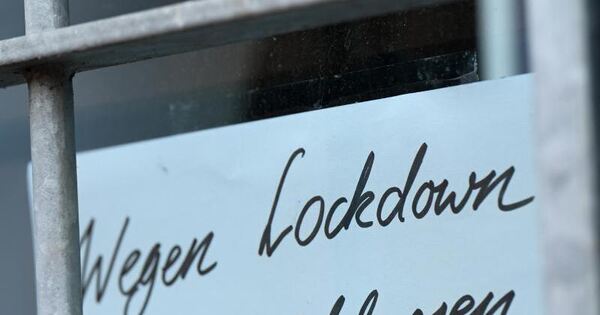 Wegen Lockdown